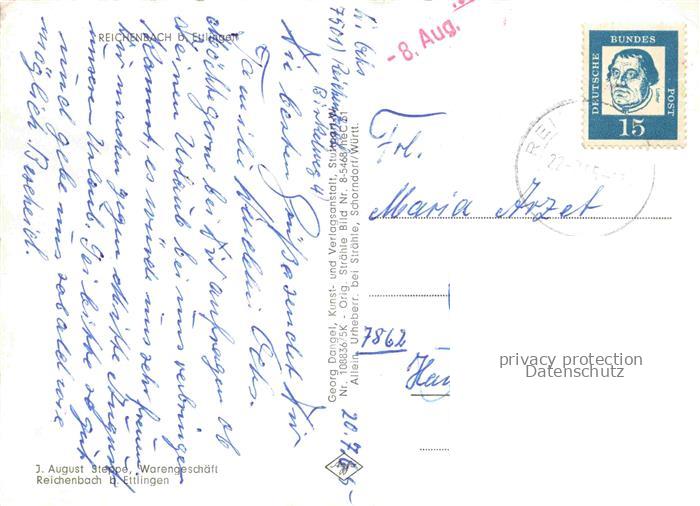 REICHENBACH b. Ettlingen
Die besten Grüße sendet Dir
Familie Wendelin Ochs.
Möchte gerne bei Dir anfragen ob
Du Deinen Urlaub bei uns verbringen
kannst, es würde uns sehr freuen.
Wir machen gegen Mitte August
unseren Urlaub. Sei bitte so gut
und gebe uns sobald wie
möglich Bescheid.
W. Ochs
7501 Reichenbach
20.7.65
J. August Steppe, Warengeschäft
Reichenbach b. Ettlingen
Georg Dangel, Kunst- und Verlagsanstalt, Stuttgart-W
Nr. 108836/5K - Orig. Strähle Bild Nr. 8-5468/neC 21
Allein. Urheberr. bei Strähle, Schorndorf/Württ.
-8. Aug.
DEUTSCHE BUNDES POST
15
REI
Frl.
Maria Arzet
7862
privacy protection
Datenschutz